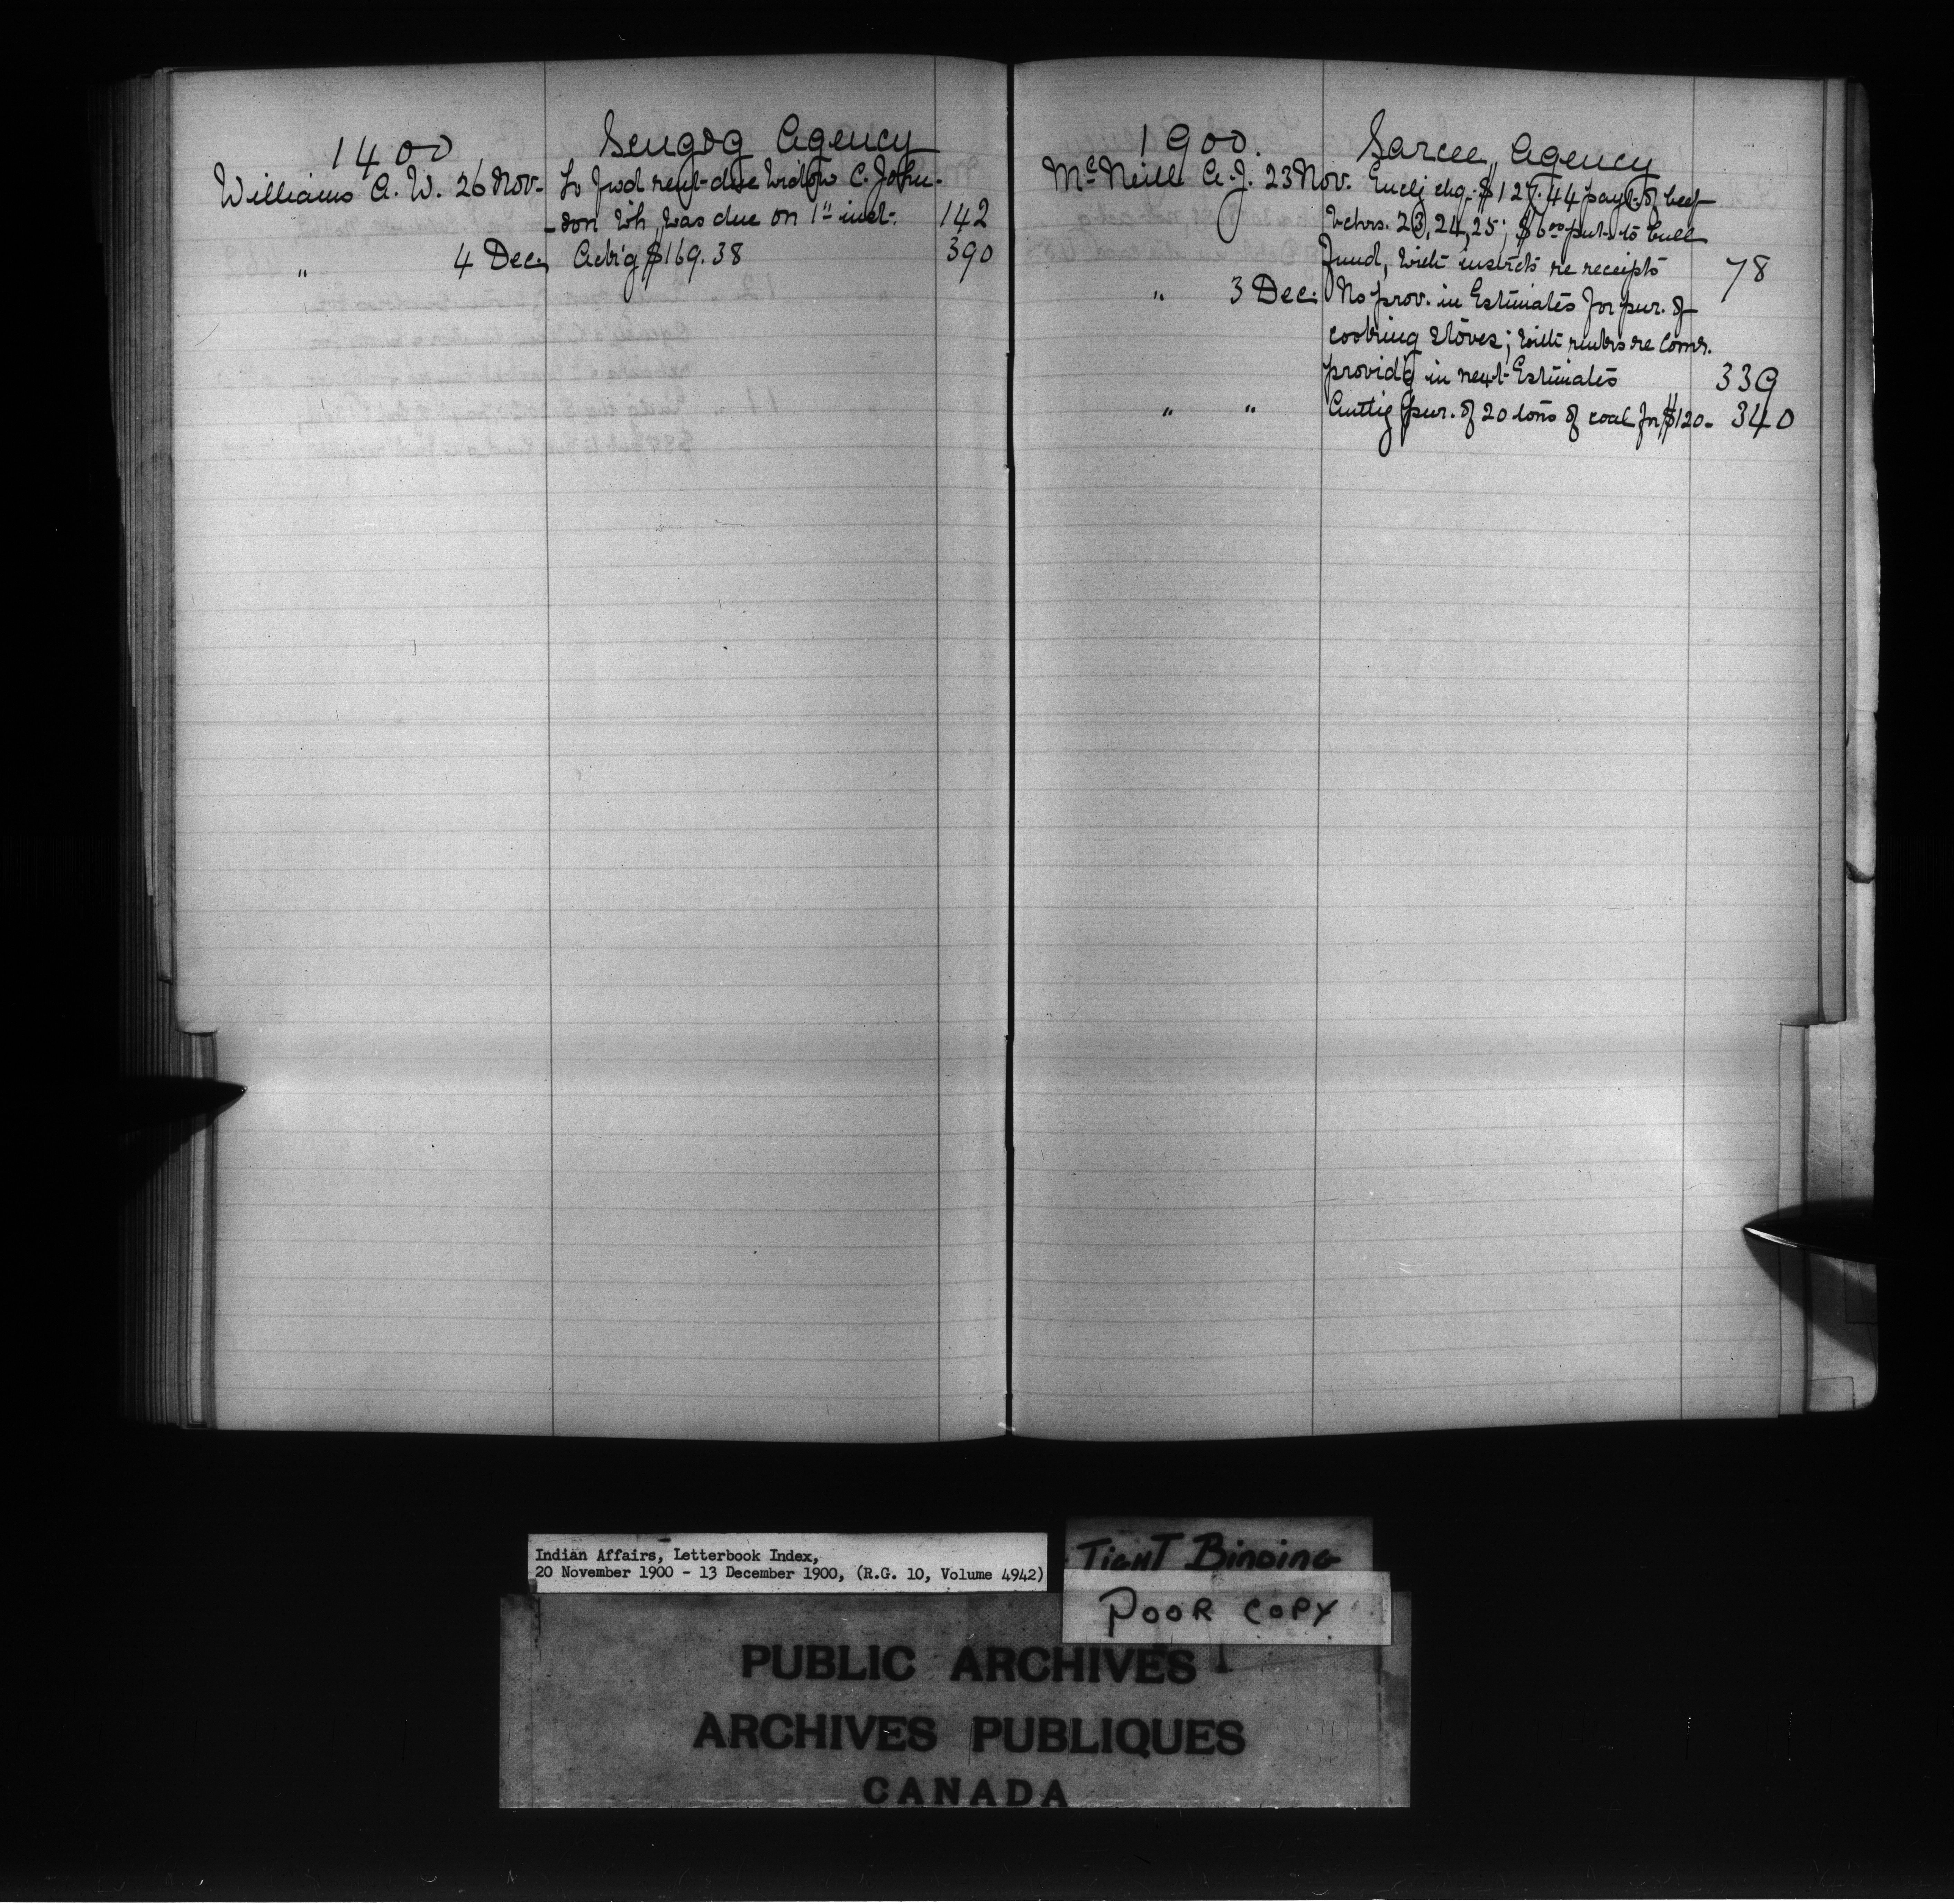 1400 Scugog Agency
Williams A. W. 26 Nov. To fwd rent due Widow C. John-
-son wh. was due on 1st inst. 142
" 4 Dec. Ackg $169.38 390
1900. Sarcee Agency
McNeill A. J. 23 Nov. Enclg chq. $127.44 payt. of beef
vchrs. 23, 24, 25; $6.00 put to bull
Fund, with instrcts re receipts 78
" 3 Dec. No prov. in Estimates for pur. of
cooking stoves; with re Comr.
providg in next Estimates 339
" " Authg pur. of 20 tons of coal for $120. 340
Indian Affairs, Letterbook Index,
20 November 1900 - 13 December 1900, (R.G. 10, Volume 4942)
TIGHT BINDING
POOR COPY
PUBLIC ARCHIVES
ARCHIVES PUBLIQUES
CANADA